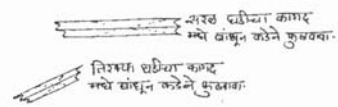 सरळ घडीचा कागद
मधे बांधून कडेने फुलवावा.
तिरक्या घडीचा कागद
मधे बांधून कडेने फुलवावा.